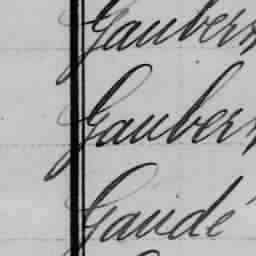 Gauber
Gauber
Gaudé